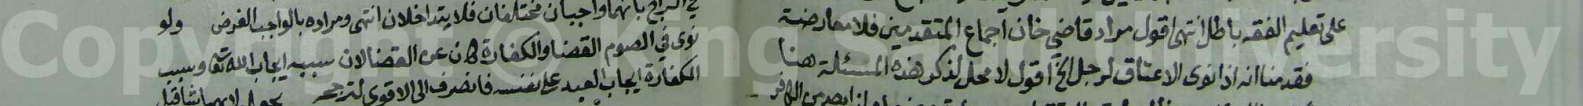 على تعليم الفقه باطل انتهى اقول مراد قاضي خان اجماع المتقدمين فلا معارضة
فقد منا انه اذا نوى الاعتاق لرجل الخ اقول لا محل لذكر هذه المسئلة هنا
بانهما واجبان مختلفان فلا يتداخلان انتهى ومراده بالواجب الفرض ولو
نوى في الصوم القضا والكفارة كان عن القضا لان سببه ايجاب الله تعالى وسبب
الكفارة ايجاب العبد على نفسه فانصرف الى الاقوى لترجحه
Copyright © King Saud University